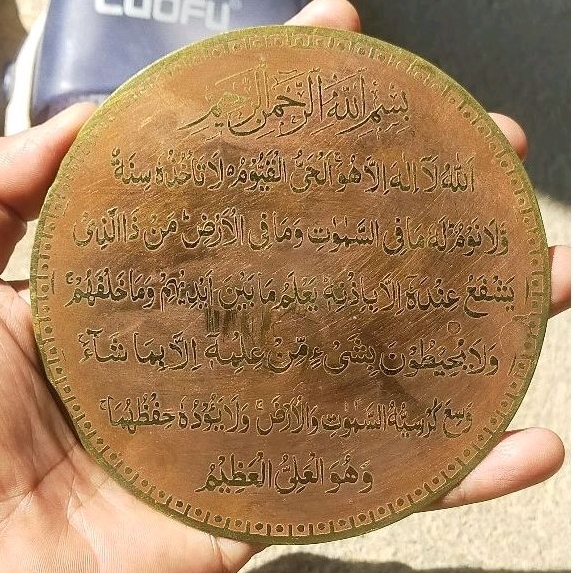 LUOFU
بِسْمِ اللهِ الرَّحْمٰنِ الرَّحِيْمِ
اَللهُ لَآ اِلٰهَ اِلَّا هُوَ اَلْحَيُّ الْقَيُّوْمُ ە لَا تَاْخُذُهٗ سِنَةٌ
وَّلَا نَوْمٌ لَهٗ مَا فِى السَّمٰوٰتِ وَمَا فِى الْاَرْضِ مَنْ ذَا الَّذِىْ
يَشْفَعُ عِنْدَهٗٓ اِلَّا بِاِذْنِهٖ يَعْلَمُ مَا بَيْنَ اَيْدِيْهِمْ وَمَا خَلْفَهُمْ
وَلَا يُحِيْطُوْنَ بِشَىْءٍ مِّنْ عِلْمِهٖٓ اِلَّا بِمَا شَآءَ
وَسِعَ كُرْسِيُّهُ السَّمٰوٰتِ وَالْاَرْضَ وَلَا يَئُوْدُهٗ حِفْظُهُمَا
وَهُوَ الْعَلِىُّ الْعَظِيْمُ